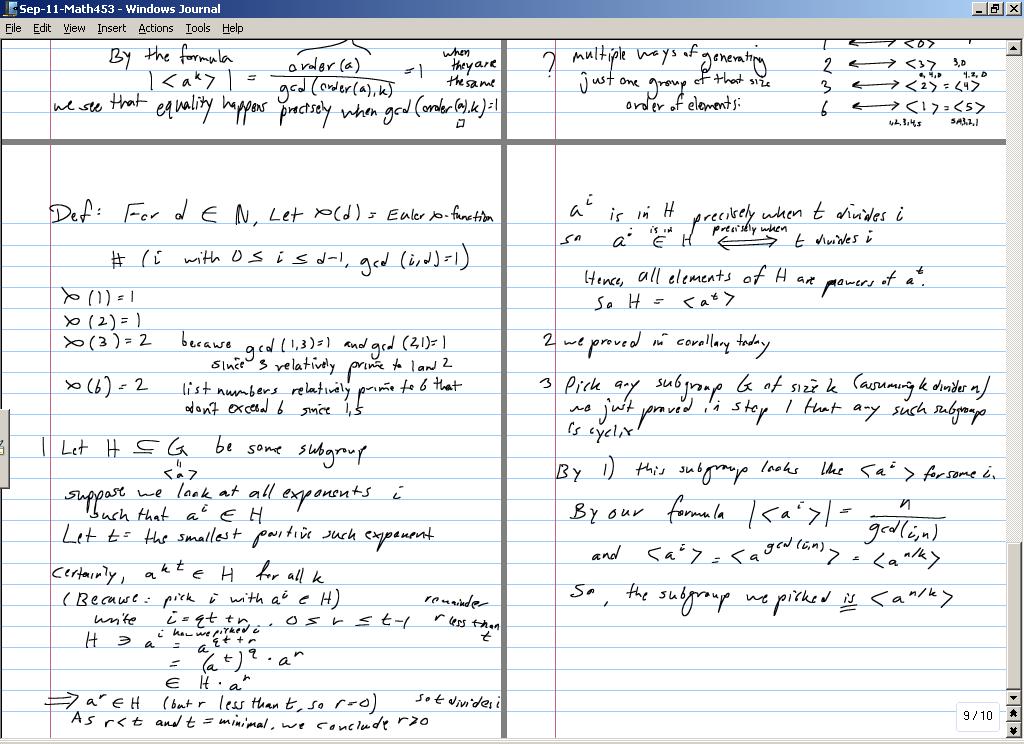 Sep-11-Math453 - Windows Journal
File Edit View Insert Actions Tools Help
By the formula
|<a^k>| = order(a) / gcd(order(a),k) = 1 when they are the same
we see that equality happens precisely when gcd(order(a),k)=1
□
? multiple ways of generating
just one group of that size
order of elements:
1 ⟷ <0>
2 ⟷ <3> 3,0
3 ⟷ <2> = <4> 4,2,0
6 ⟷ <1> = <5>
1,2,3,4,5 5,4,3,2,1
Def: For d ∈ N, Let φ(d) = Euler φ-function
# (i with 0 ≤ i ≤ d-1, gcd (i,d)=1)
φ(1)=1
φ(2)=1
φ(3)=2 because gcd(1,3)=1 and gcd(2,1)=1
since 3 relatively prime to 1 and 2
φ(6)=2 list numbers relatively prime to 6 that
don't exceed 6 since 1,5
1 Let H ⊆ G be some subgroup
"
<a>
suppose we look at all exponents i
such that a^i ∈ H
Let t = the smallest positive such exponent
certainly, a^kt ∈ H for all k
(Because: pick i with a^i ∈ H)
write i=qt+r, 0 ≤ r ≤ t-1 remainder r less than t
H ∋ a^i = a^qt+r how we picked i
= (a^t)^q · a^r
∈ H · a^r
⟹ a^r ∈ H (but r less than t, so r=0) so t divides i
As r<t and t = minimal, we conclude r=0
a^i is in H precisely when t divides i
so a^i ∈ H ⟷ t divides i
is in precisely when
Hence, all elements of H are powers of a^t.
So H = <a^t>
2 we proved in corollary today
3 Pick any subgroup G of size k (assuming k divides n)
we just proved in step 1 that any such subgroup
is cyclic
By 1) this subgroup looks like <a^i> for some i.
By our formula |<a^i>| = n / gcd(i,n)
and <a^i> = <a^gcd(i,n)> = <a^n/k>
So, the subgroup we picked is <a^n/k>
9 / 10